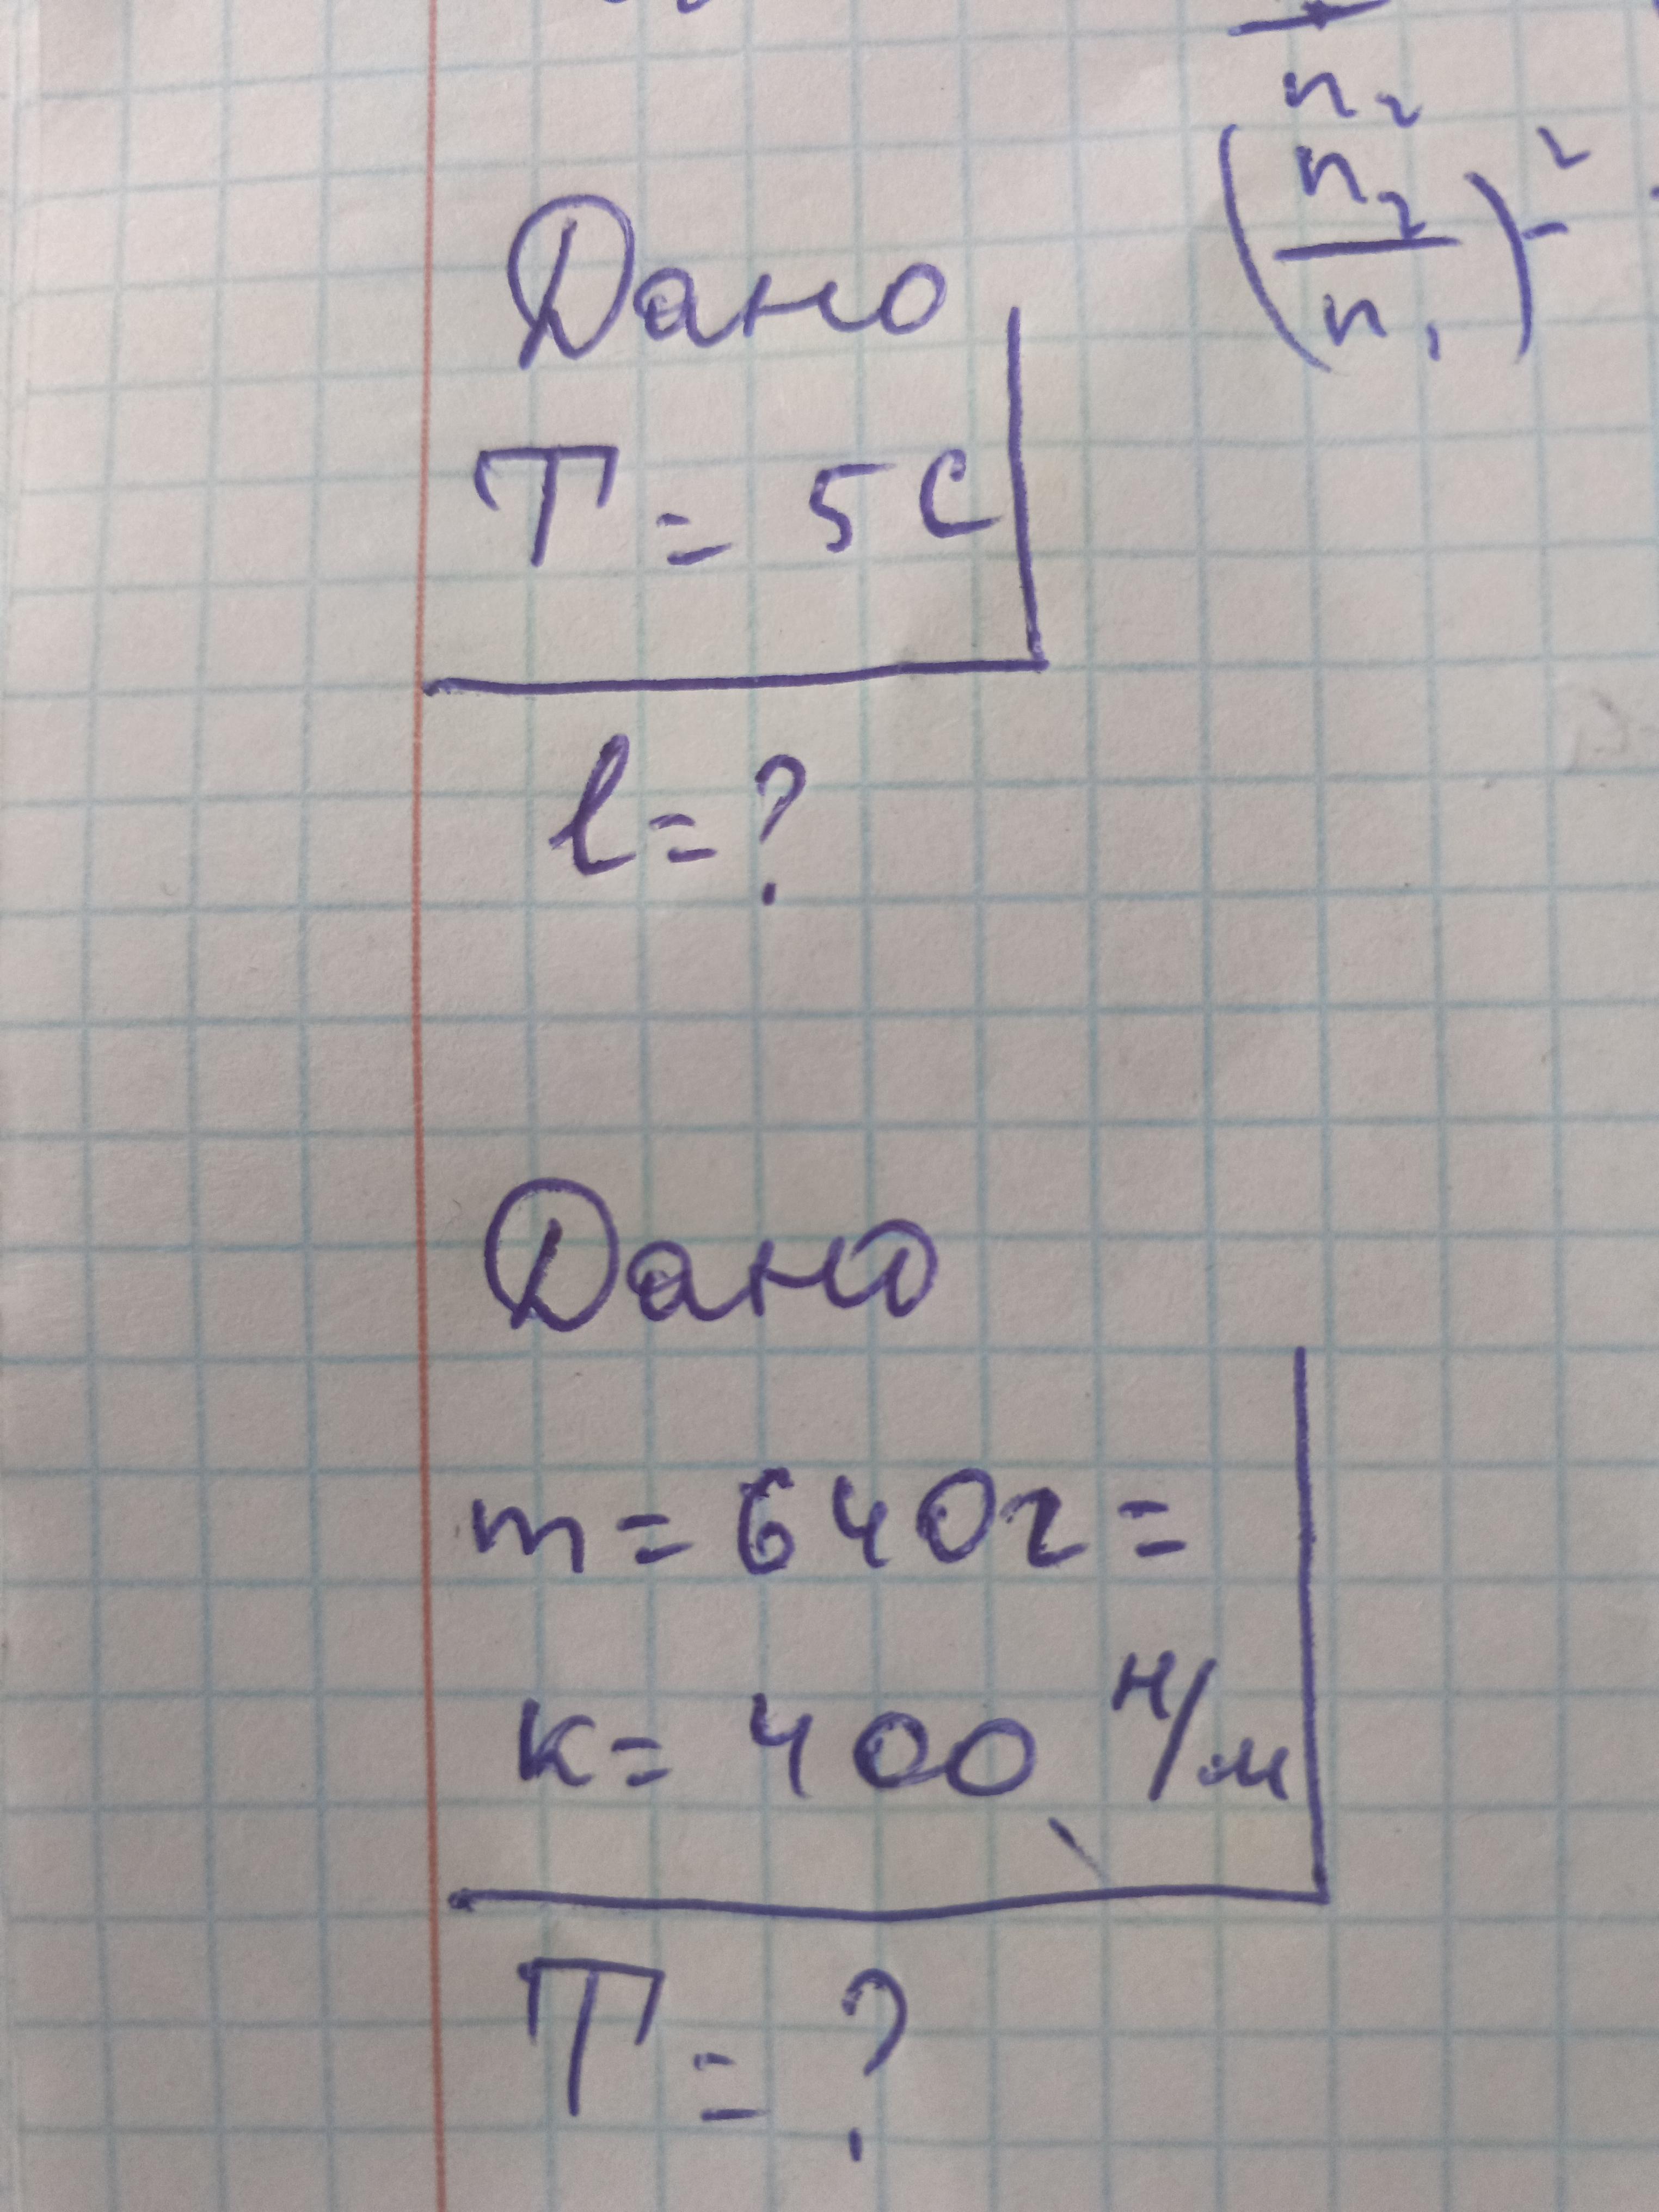 n₂
(n₂/n₁)² =
Дано
T = 5 с
l = ?
Дано
m = 640 г =
к = 400 н/м
T = ?